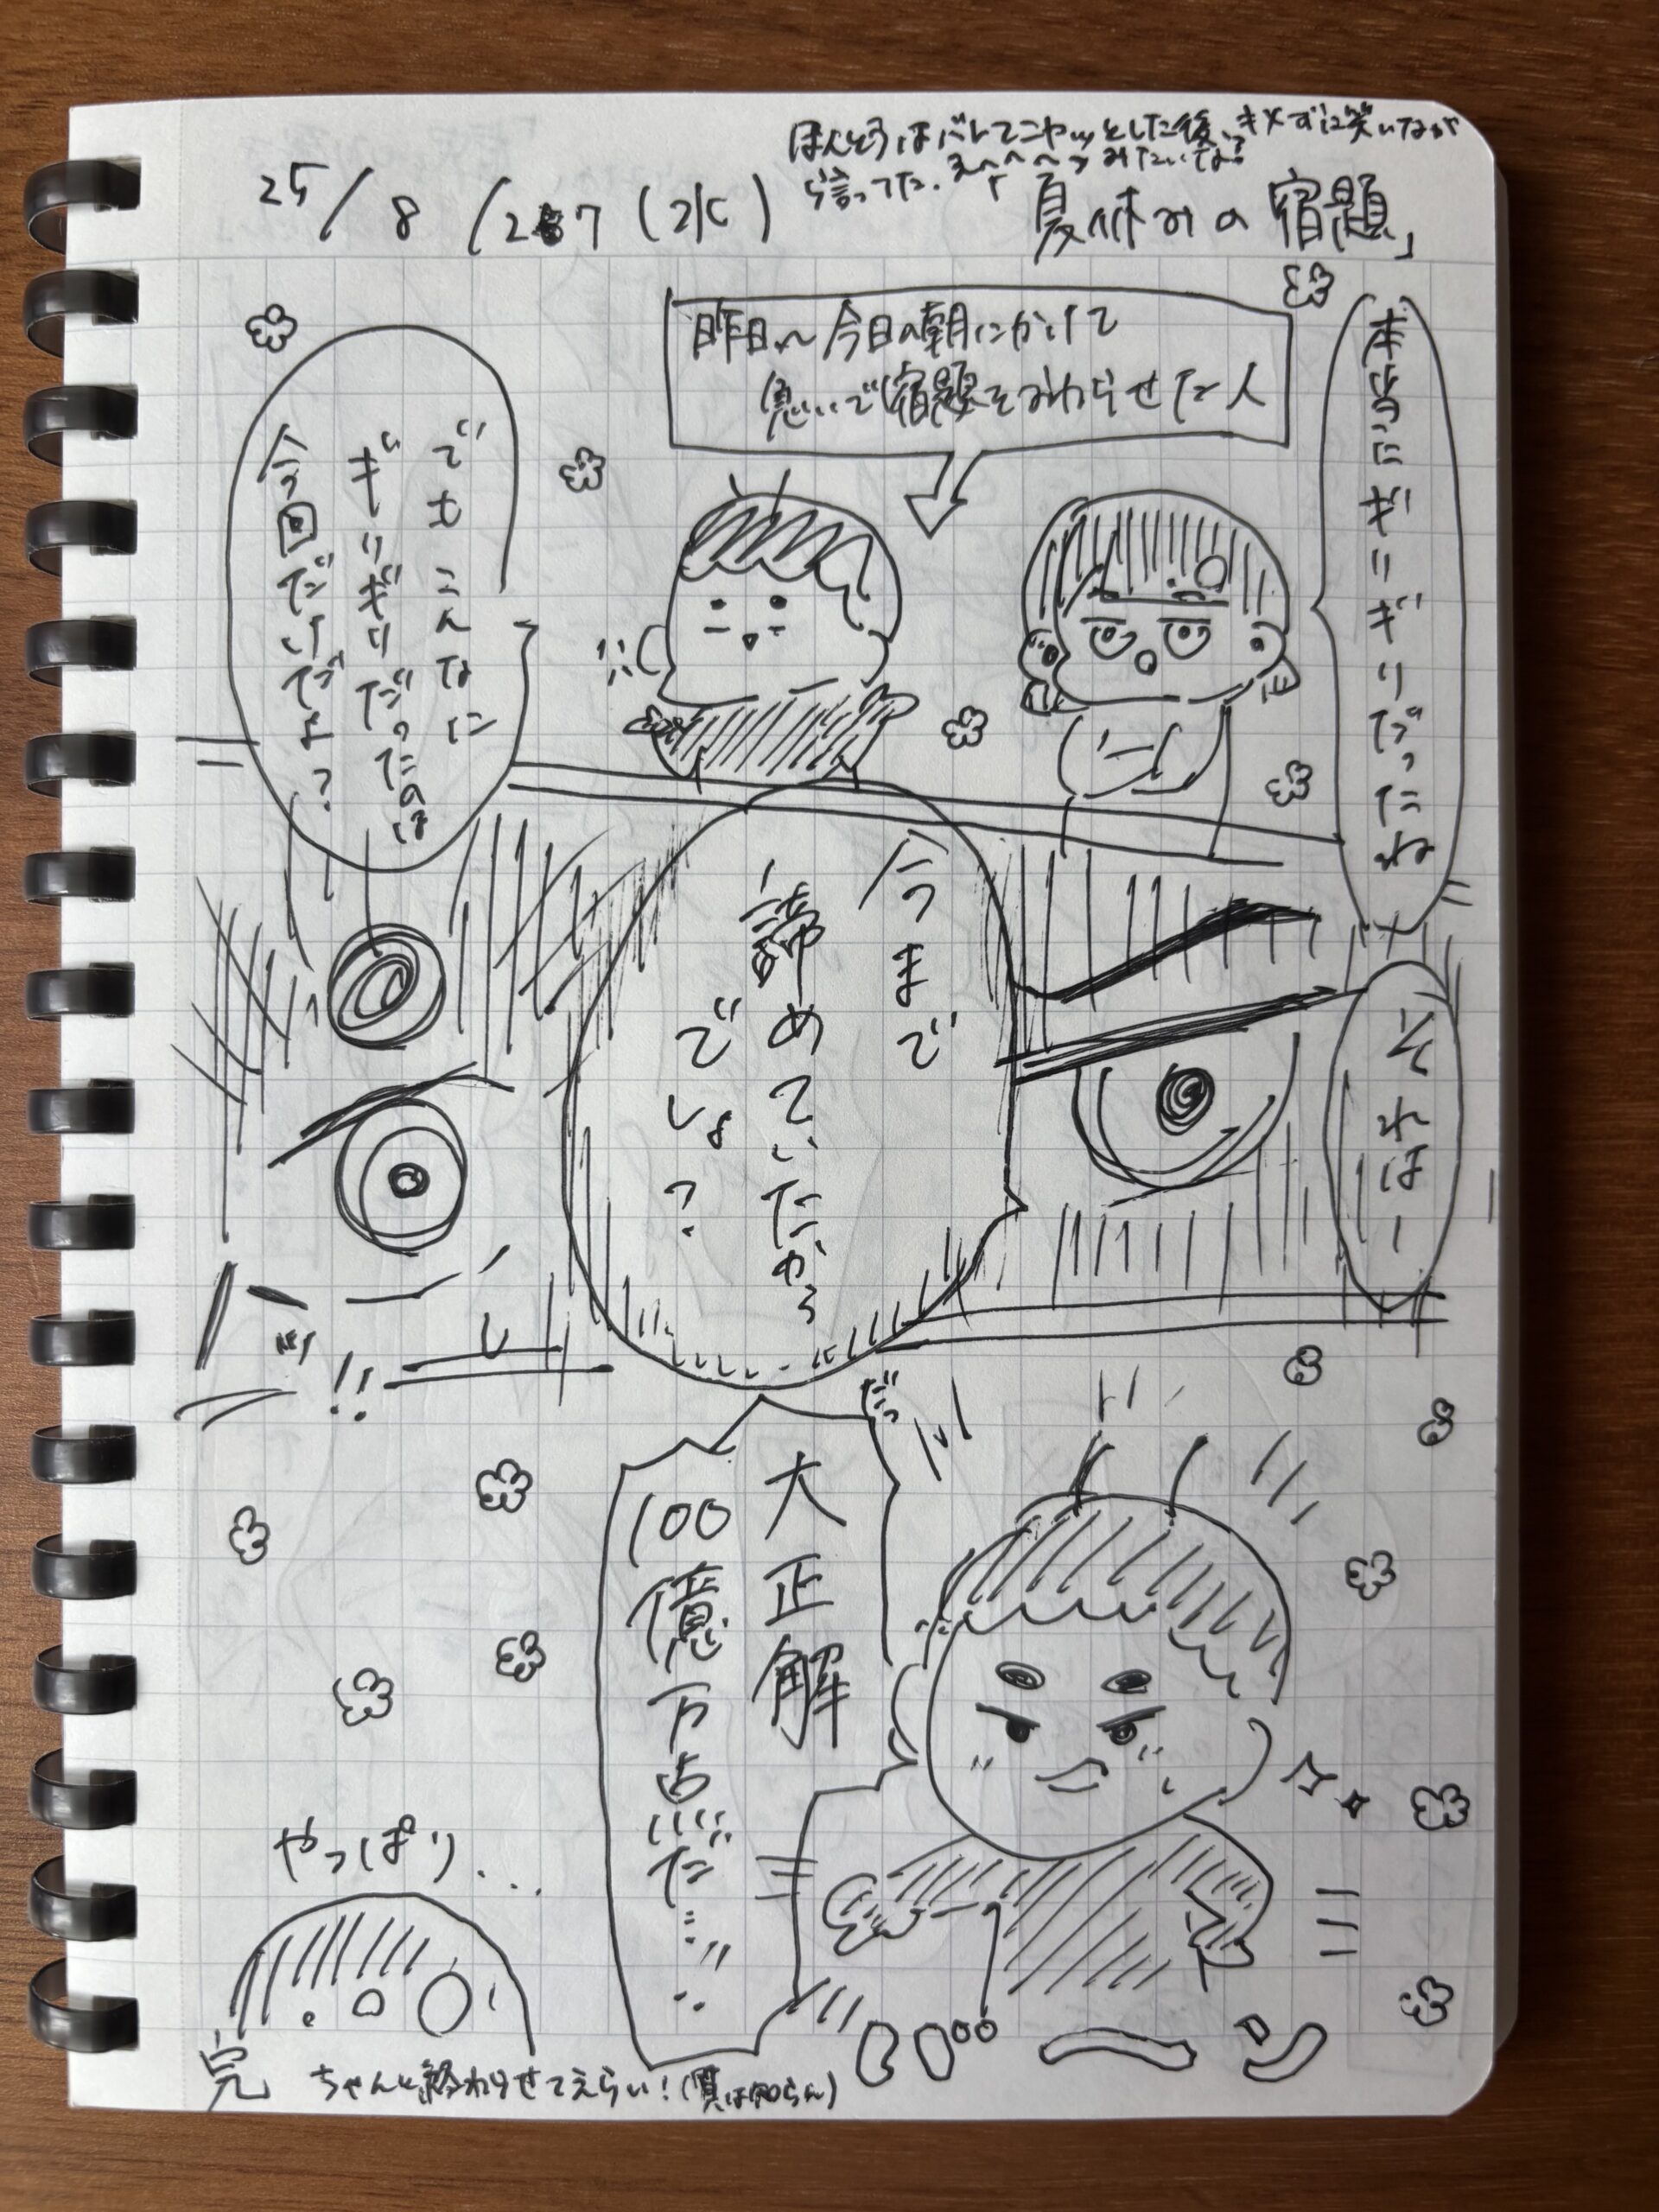 ほんとうはバレてニヤッとした後、キメずに笑いなが
ら言った。えへへへっみたいな?
25/8/27(水)
夏休みの宿題」
昨日〜今日の朝にかけて
急いで宿題をおわらせた人
本当にギリギリだったね
でもこんなに
ギリギリだったのは
今回だけだよ?
それはー
今まで
諦めていたから
でしょ?
ハッ!!
だっ
大正解
100億万点だ……
バーン
やっぱり...
完
ちゃんと終わらせてえらい!(質は知らん)